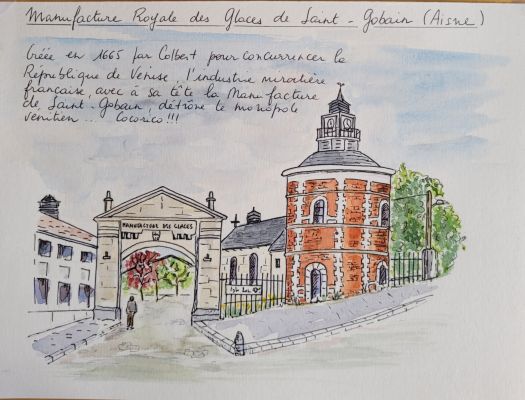 Manufacture Royale des Glaces de Saint-Gobain (Aisne)
Créée en 1665 par Colbert pour concurrencer la
République de Venise, l'industrie miroitière
française, avec à sa tête la Manufacture
de Saint-Gobain, détrône le monopole
vénitien ... Cocorico!!!
MANUFACTURE DES GLACES